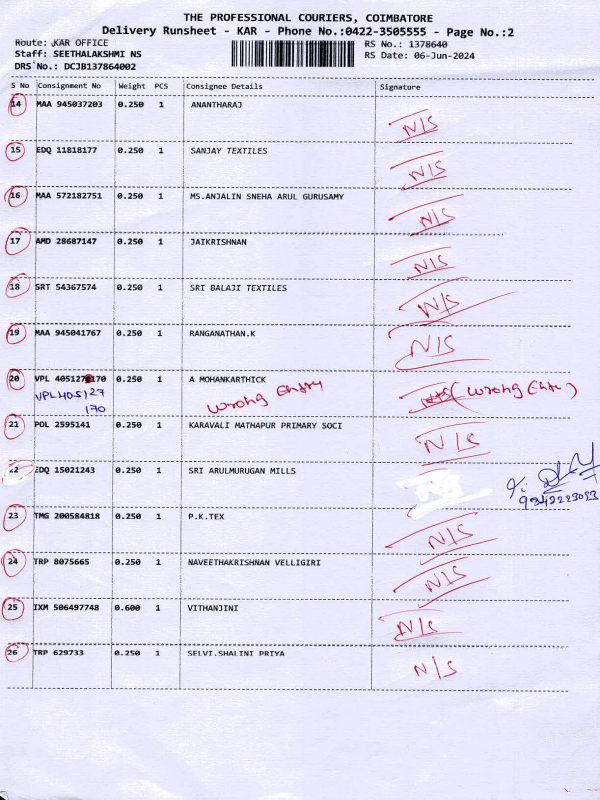 THE PROFESSIONAL COURIERS, COIMBATORE
Delivery Runsheet - KAR - Phone No.:0422-3505555 - Page No.:2
Route: KAR OFFICE RS No.: 1378640
Staff: SEETHALAKSHMI NS RS Date: 06-Jun-2024
DRS No.: DCJB137864002
S No Consignment No Weight PCS Consignee Details Signature
14 MAA 945037203 0.250 1 ANANTHARAJ
N/S
15 EDQ 11818177 0.250 1 SANJAY TEXTILES
N/S
16 MAA 572182751 0.250 1 MS.ANJALIN SNEHA ARUL GURUSAMY
N/S
17 AMD 28687147 0.250 1 JAIKRISHNAN
N/S
18 SRT 54367574 0.250 1 SRI BALAJI TEXTILES
N/S
19 MAA 945041767 0.250 1 RANGANATHAN.K
N/S
20 VPL 40512 170 0.250 1 A MOHANKARTHICK
VPL 405127 Wrong Entry Wrong Entry
170
21 POL 2595141 0.250 1 KARAVALI MATHAPUR PRIMARY SOCI
N/S
22 EDQ 15021243 0.250 1 SRI ARULMURUGAN MILLS
23 TMG 200584818 0.250 1 P.K.TEX
N/S
24 TRP 8075665 0.250 1 NAVEETHAKRISHNAN VELLIGIRI
N/S
25 IXM 506497748 0.600 1 VITHANJINI
N/S
26 TRP 629733 0.250 1 SELVI.SHALINI PRIYA
N/S